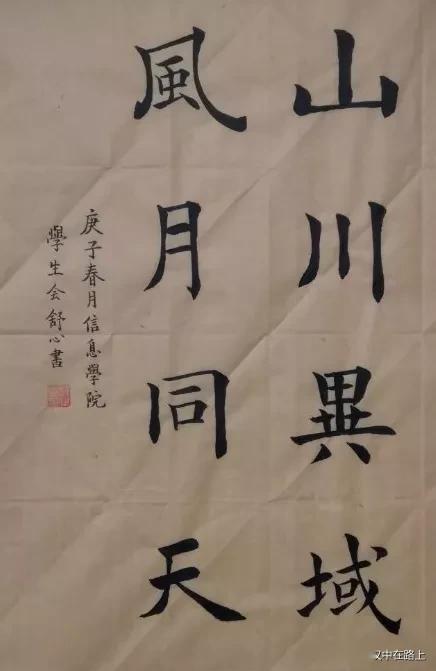 山川異域
風月同天
庚子春月信息學院
學生会舒心書
中在路上